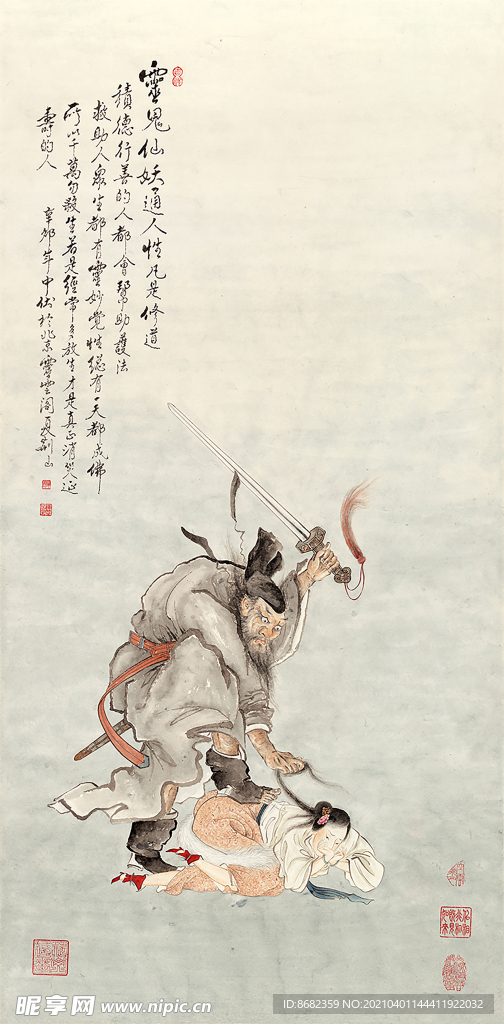 靈鬼仙妖通人性凡是修道
積德行善的人都會幫助護法
救助人衆生都有靈妙覺性總有一天都成佛
所以千萬勿殺生若是經常多放生才是真正消災延
壽的人
辛卯年中伏於北京靈雲閣
昵享网 www.nipic.cn
ID:8682359 NO:20210401144411922032